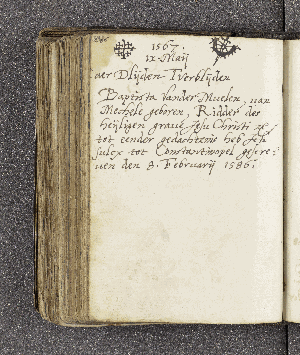 1567.
ix Maij
aer Dlijden Tverblijden
Baptista Vander Muelen, van
Mechele geboren, Ridder des
heijligen graue Jesu Christi
tot eender gedachtenis heb
tot Constantinopel gescre:
uen den 8. Februarij 1586.